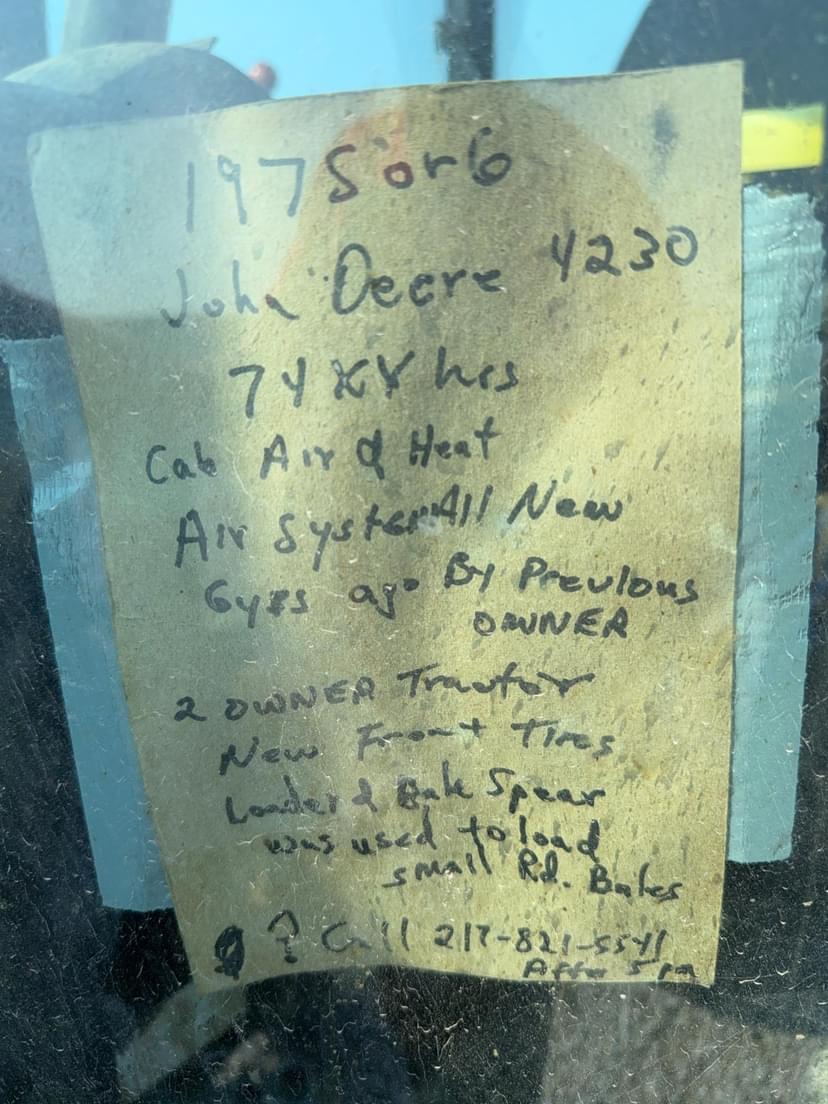 1975 or 6
John Deere 4230
74XX hrs
Cab Air & Heat
Air System All New
6yrs ago By Previous
OWNER
2 OWNER Tractor
New Front Tires
Loader & Bale Spear
was used to load
small Rd. Bales
? Call 217-821-5541
After 5 pm